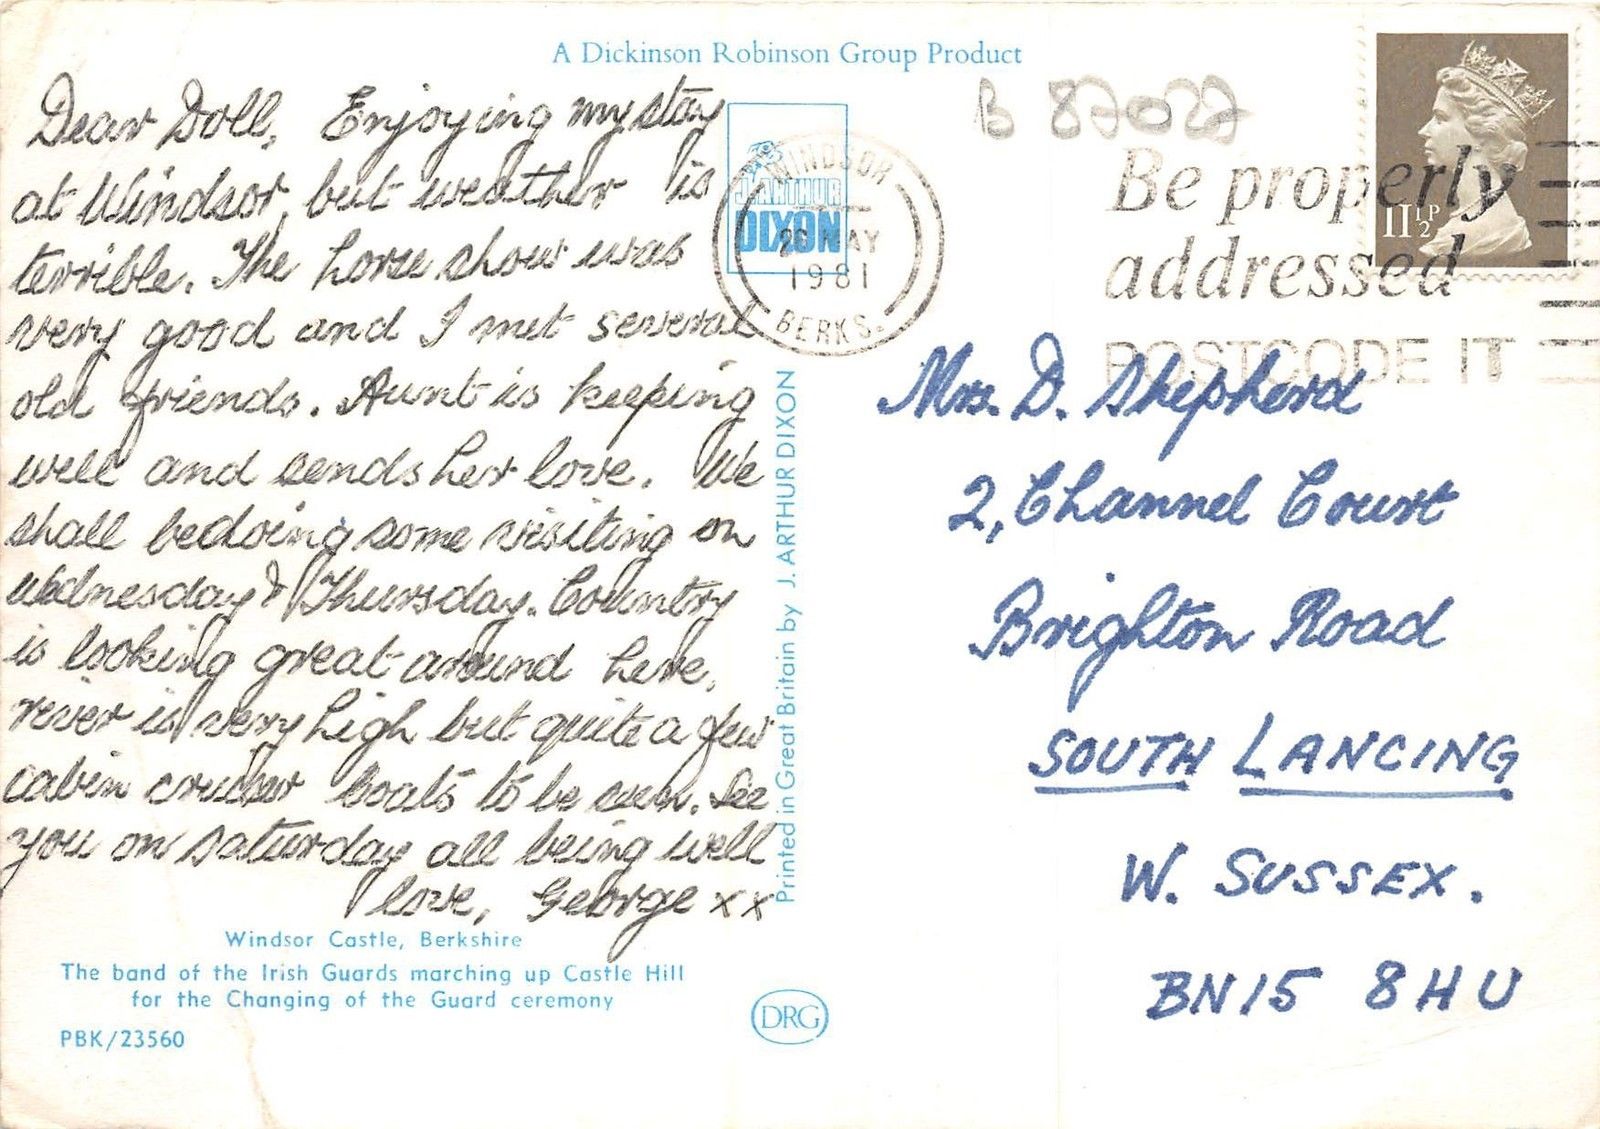 A Dickinson Robinson Group Product
B 87027
Dear Doll, Enjoying my stay
at Windsor, but weather is
terrible. The horse show was
very good and I met several
old friends. Aunt is keeping
well and sends her love. We
shall be doing some visiting on
Wednesday & Thursday. Country
is looking great around here,
river is very high but quite a few
cabin cruiser boats to be seen. See
you on Saturday all being well
love, George xx
Windsor Castle, Berkshire
The band of the Irish Guards marching up Castle Hill
for the Changing of the Guard ceremony
PBK/23560
J. ARTHUR
DIXON
WINDSOR
MAY
1981
BERKS.
Printed in Great Britain by J. ARTHUR DIXON
DRG
Be properly
addressed
POSTCODE IT
11½P
Mrs. D. Shepherd
2, Channel Court
Brighton Road
SOUTH LANCING
W. SUSSEX.
BN15 8HU